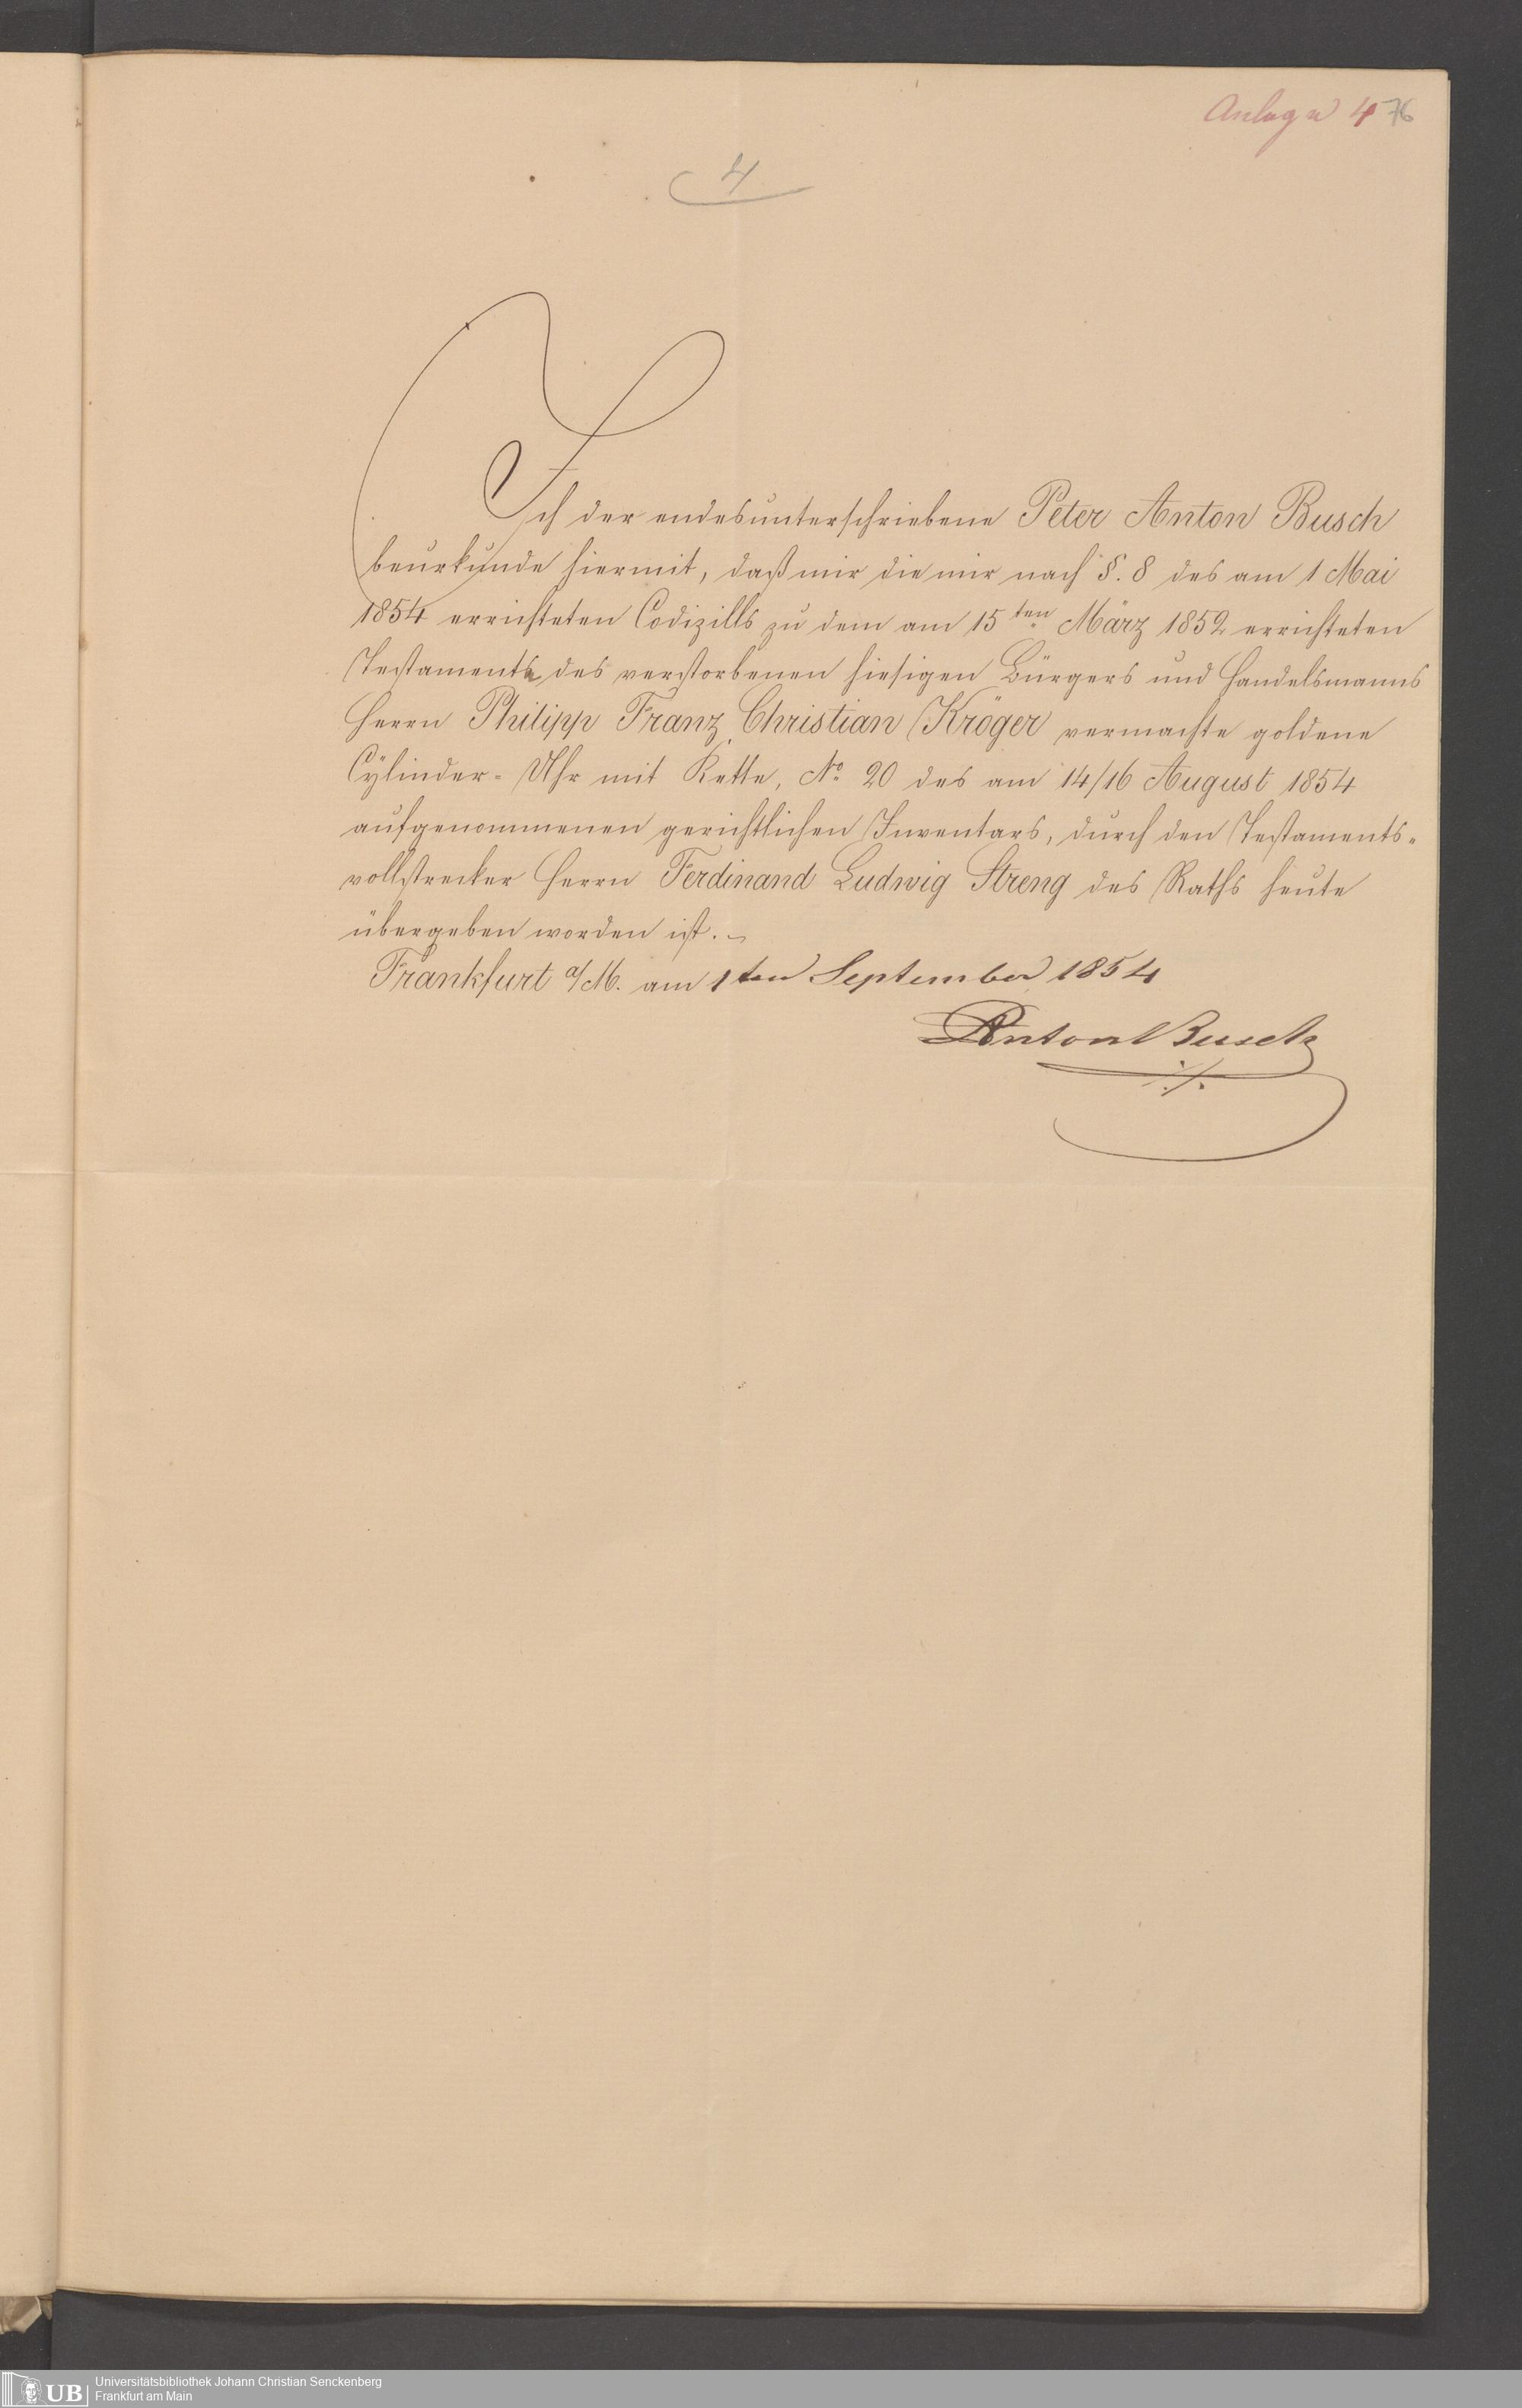 Anlage 4 76
4
Ich der endesunterschriebene Peter Anton Busch
beurkunde hiermit, daß mir die mir nach §. 8 des am 1 Mai
1854 errichteten Codizills zu dem am 15ten März 1852 errichteten
Testamente des verstorbenen hiesigen Bürgers und Handelsmanns
Herrn Philipp Franz Christian Kröger vermachte goldene
Cÿlinder-Uhr mit Kette, No 20 des am 14/16 August 1854
aufgenommenen gerichtlichen Inventars, durch den Testaments-
vollstrecker Herrn Ferdinand Ludwig Streng des Raths heute
übergeben worden ist.
Frankfurt a/M. am 1ten September 1854
Anton Busch
UB Universitätsbibliothek Johann Christian Senckenberg
Frankfurt am Main